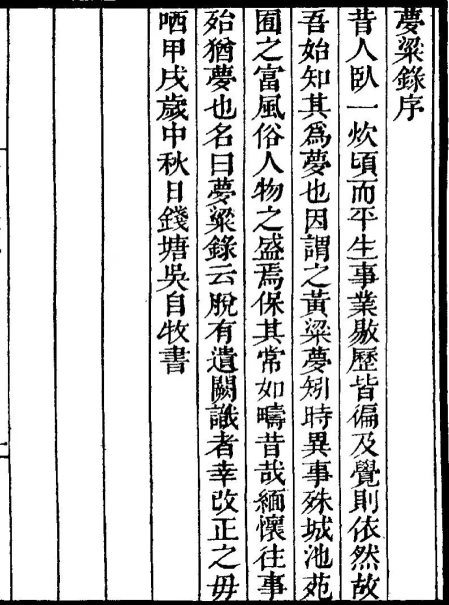 夢粱錄序
昔人臥一炊頃而平生事業敭歷皆徧及覺則依然故
吾始知其爲夢也因謂之黃粱夢矧時異事殊城池苑
囿之富風俗人物之盛焉保其常如疇昔哉緬懷往事
殆猶夢也名曰夢粱錄云脫有遺闕識者幸改正之毋
哂甲戌歲中秋日錢塘吳自牧書